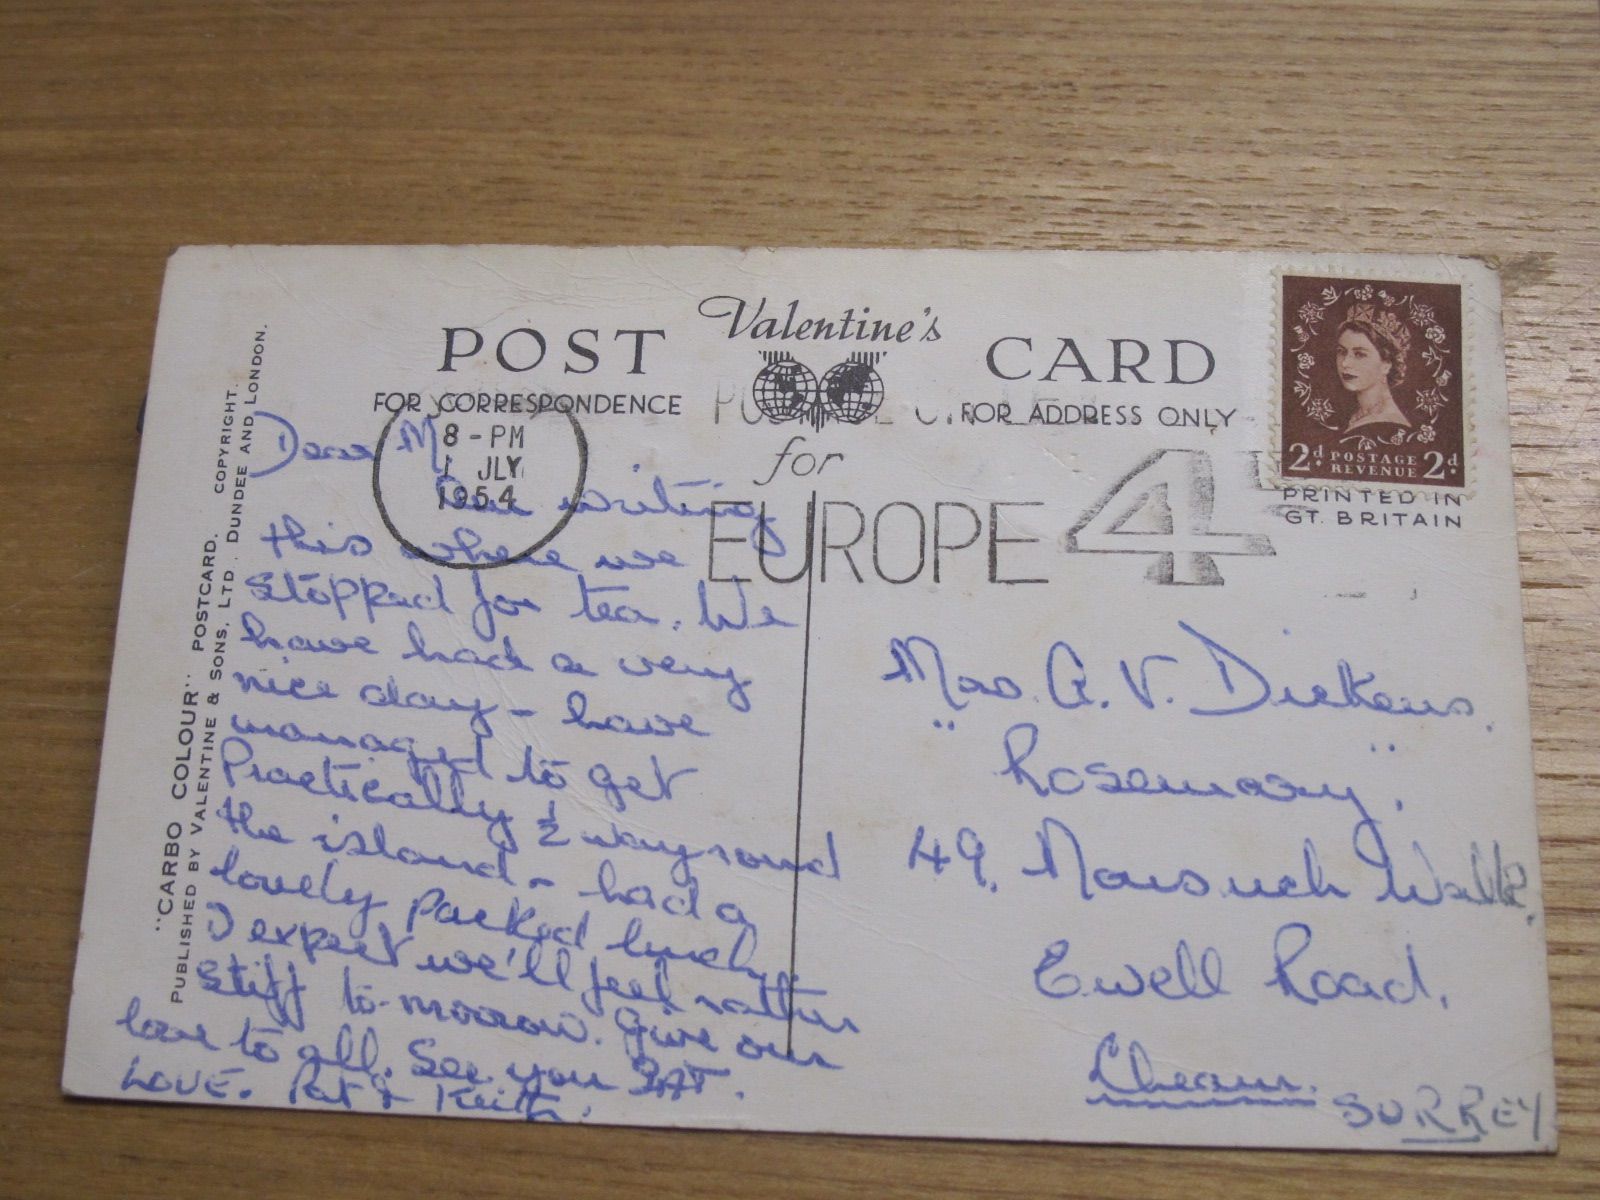 "CARBO COLOUR" POSTCARD. COPYRIGHT.
PUBLISHED BY VALENTINE & SONS, LTD., DUNDEE AND LONDON.
POST Valentine's CARD
FOR CORRESPONDENCE
FOR ADDRESS ONLY
8 - PM
1 JLY
1954
for
EUROPE 4
2d POSTAGE REVENUE 2d
PRINTED IN
GT. BRITAIN
Dear M
writing
this where we
stopped for tea. We
have had a very
nice day - have
managed to get
Practically ½ way round
the island - had a
lovely packed lunch,
I expect we'll feel rather
stiff to-morrow. Give our
love to all. See you SAT.
LOVE. Pat & Keith.
Mrs. A. V. Dickens.
"Rosemary".
49, Nonsuch Walk,
Ewell Road,
Cheam.
SURREY